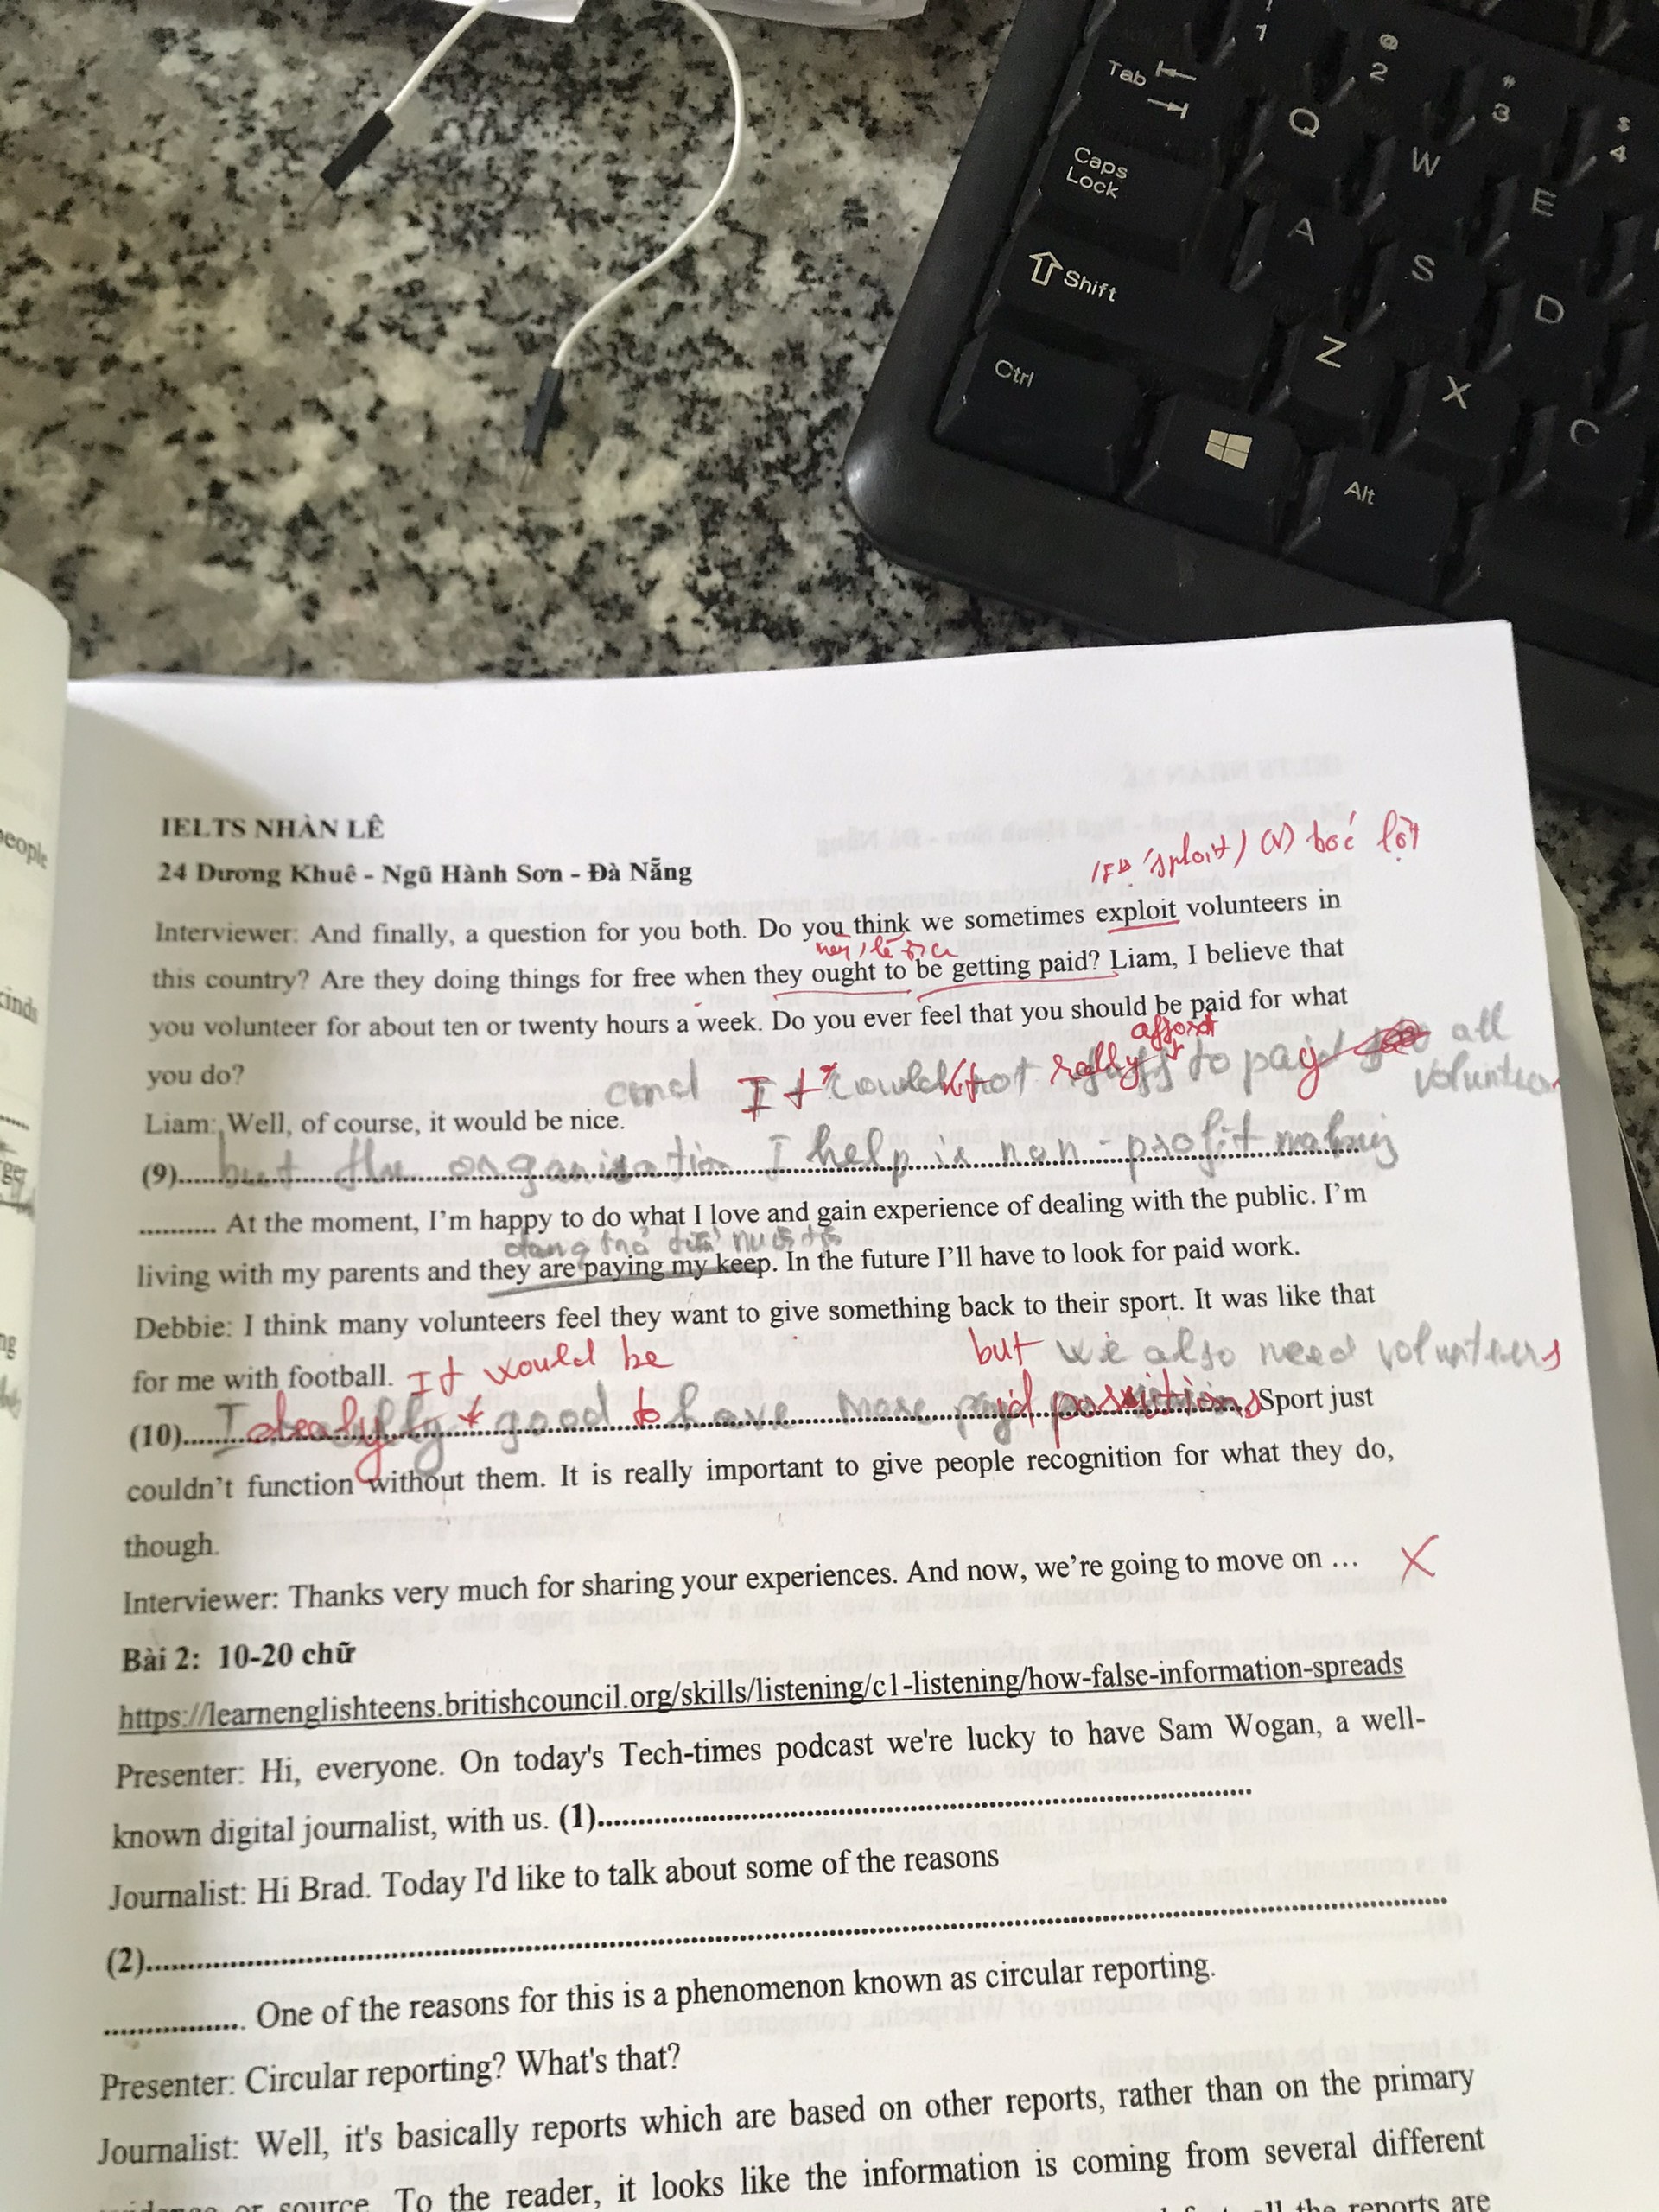 Tab
Caps
Lock
Shift
Ctrl
Alt
1
@
2
#
3
$
4
Q
W
E
A
S
D
Z
X
C
eople
kinds
IELTS NHÀN LÊ
24 Dương Khuê - Ngũ Hành Sơn - Đà Nẵng
(v) bóc lột
Interviewer: And finally, a question for you both. Do you think we sometimes exploit volunteers in
this country? Are they doing things for free when they ought to be getting paid? Liam, I believe that
you volunteer for about ten or twenty hours a week. Do you ever feel that you should be paid for what
afford
you do?
and It couldn't really to pay all
Liam: Well, of course, it would be nice.
(9) but the organisation I help is non-profit making
.......... At the moment, I'm happy to do what I love and gain experience of dealing with the public. I'm
living with my parents and they are paying my keep. In the future I'll have to look for paid work.
Debbie: I think many volunteers feel they want to give something back to their sport. It was like that
for me with football. It would be but we also need volunteers
(10) good to have more paid positions Sport just
couldn't function without them. It is really important to give people recognition for what they do,
though.
Interviewer: Thanks very much for sharing your experiences. And now, we're going to move on ...
Bài 2: 10-20 chữ
https://learnenglishteens.britishcouncil.org/skills/listening/c1-listening/how-false-information-spreads
Presenter: Hi, everyone. On today's Tech-times podcast we're lucky to have Sam Wogan, a well-
known digital journalist, with us. (1)..........
Journalist: Hi Brad. Today I'd like to talk about some of the reasons
(2)..........
.......... One of the reasons for this is a phenomenon known as circular reporting.
Presenter: Circular reporting? What's that?
Journalist: Well, it's basically reports which are based on other reports, rather than on the primary
or source. To the reader, it looks like the information is coming from several different
the reports are